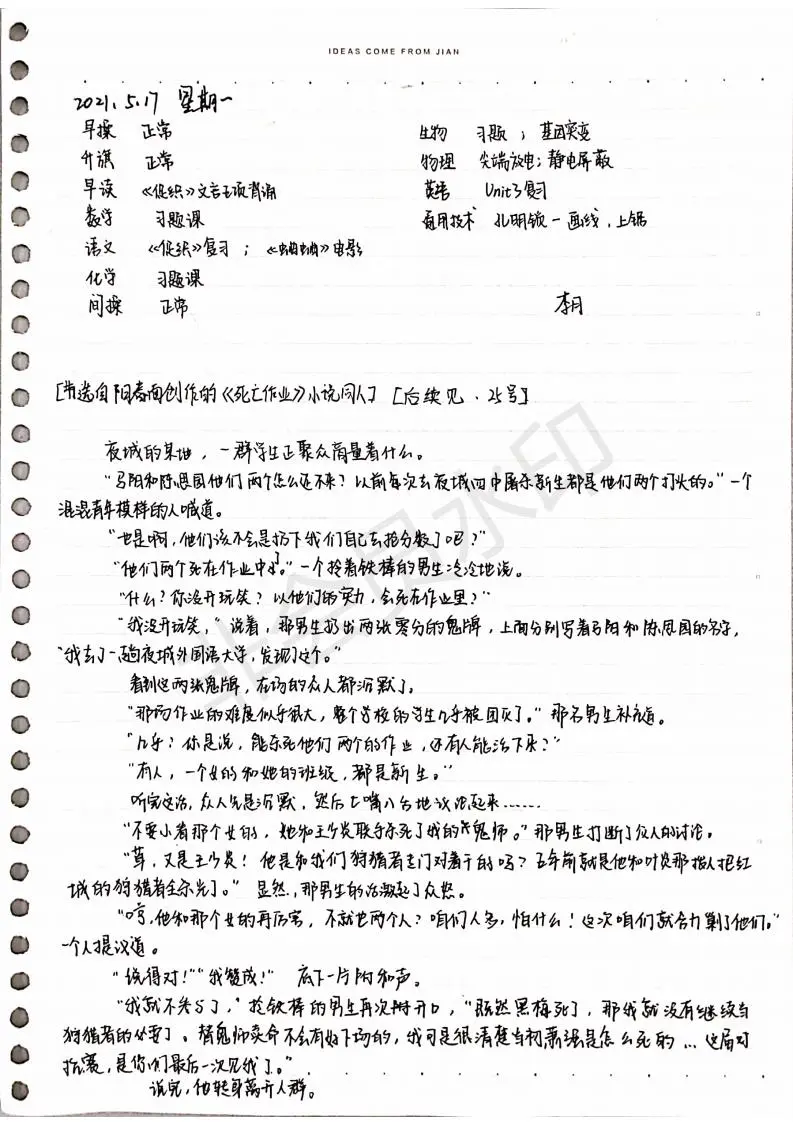 IDEAS COME FROM JIAN
2021.5.17 星期一
早操 正常
升旗 正常
早读 《促织》文言五项背诵
数学 习题课
语文 《促织》复习；《蝴蝶》电影
化学 习题课
间操 正常
生物 习题；基因突变
物理 尖端放电；静电屏蔽
英语 Unit3复习
通用技术 孔明锁－画线，上锯
李月
[节选自阳春面创作的《死亡作业》小说同人] [后续见·25号]
夜城的某地，一群学生正聚众商量着什么。
“马阳和陈恩国他们两个怎么还不来？以前每次去夜城四中屠杀新生都是他们两个打头的。”一个
混混青年模样的人喊道。
“也是啊，他们该不会是抛下我们自己去抢分数了吧？”
“他们两个死在作业中了。”一个拎着铁棒的男生冷冷地说。
“什么？你没开玩笑？以他们的实力，会死在作业里？”
“我没开玩笑，”说着，那男生扔出两张零分的鬼牌，上面分别写着马阳和陈恩国的名字，
“我去了一趟夜城外国语大学，发现了这个。”
看到这两张鬼牌，在场的众人都沉默了。
“那场作业的难度似乎很大，整个学校的学生几乎被团灭了。”那名男生补充道。
“几乎？你是说，能杀死他们两个的作业，还有人能活下来？”
“有人，一个女的和她的班级，都是新生。”
听完这话，众人先是沉默，然后七嘴八舌地议论起来……
“不要小看那个女的，她和王少炎联手杀死了我的鬼师。”那男生打断了众人的讨论。
“草，又是王少炎！他是和我们狩猎者专门对着干的吗？五年前就是他和叶炎那拨人把红
城的狩猎者全杀光了。”显然，那男生的话激起了众怒。
“哼，他和那个女的再厉害，不就也两个人？咱们人多，怕什么！这次咱们就合力剿了他们。”
一个人提议道。
“说得对！”“我赞成！” 底下一片附和声。
“我就不去了，”拎铁棒的男生再次开口，“既然黑梅死了，那我就没有继续当
狩猎者的必要了。替鬼师卖命不会有好下场的，我可是很清楚当初萧强是怎么死的…这届对
抗赛，是你们最后一次见我了。”
说完，他转身离开人群。
非会员水印